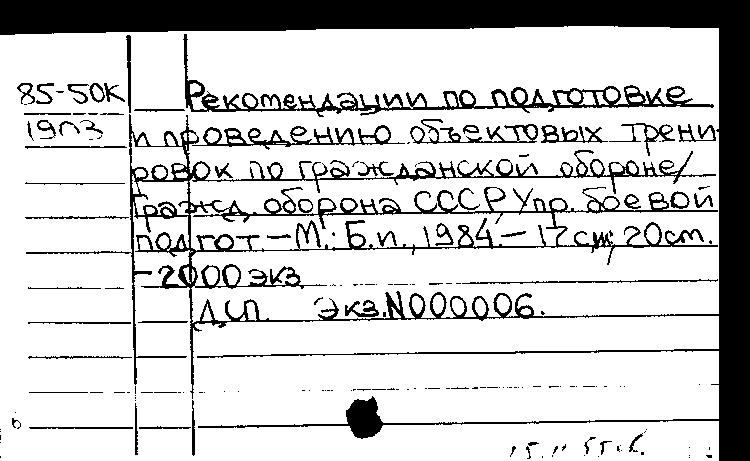 85-50К
Рекомендации по подготовке
и проведению объектовых трени-
ровок по гражданской обороне/
Гражд. оборона СССР, Упр. боевой
подгот – М.: Б.и., 1984. – 17 с.; 20 см.
– 2000 экз
ДСП. Экз.N000006.